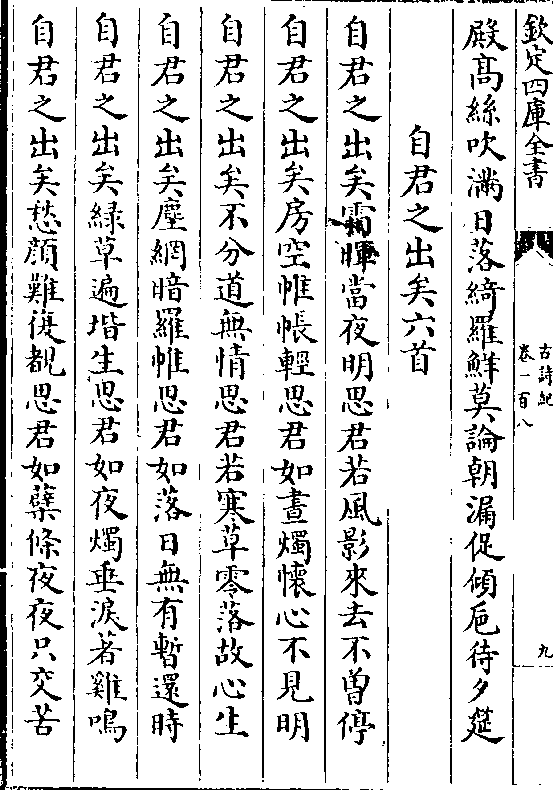 欽定四庫全書
古詩紀
卷一百八
九
殿髙絲吹滿日落綺羅鮮莫論朝漏促傾巵待夕筵
自君之出矣六首
自君之出矣霜暉當夜明思君若風影來去不曽停
自君之出矣房空帷帳輕思君如晝燭懷心不見明
自君之出矣不分道無情思君若寒草零落故心生
自君之出矣塵網暗羅帷思君如落日無有暫還時
自君之出矣緑草遍堦生思君如夜燭垂淚著雞鳴
自君之出矣愁顔難復覩思君如蘖條夜夜只交苦